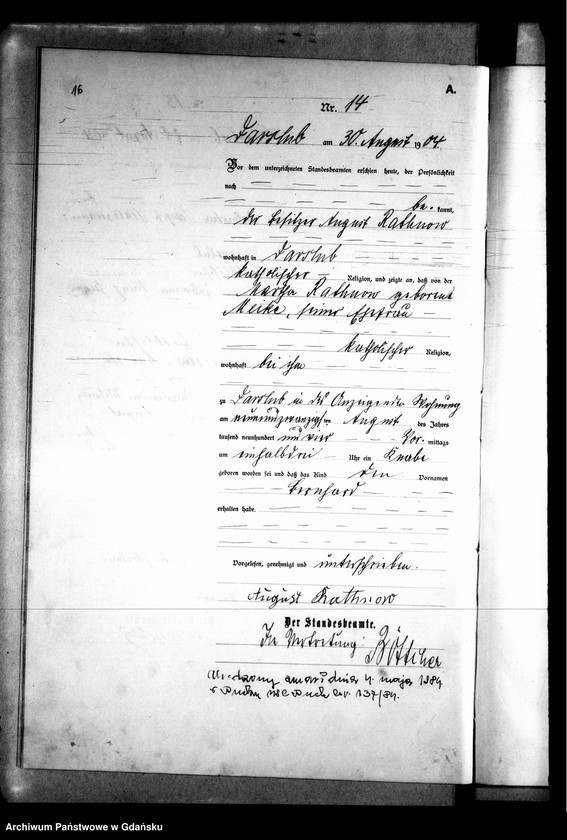 16
A.
Nr. 14
Darslub am 30. August 1904.
Vor dem unterzeichneten Standesbeamten erschien heute, der Persönlichkeit
nach
be- kannt,
der Besitzer August Kathnow
wohnhaft in Darslub
katholischer Religion, und zeigte an, daß von der
Martha Kathnow geborene
Meike, seiner Ehefrau
katholischer Religion,
wohnhaft bei ihm
zu Darslub in des Anzeigenden Wohnung
am neunundzwanzigsten August des Jahres
tausend neunhundert und vier Vor- mittags
um einhalbdrei Uhr ein Knabe
geboren worden sei und daß das Kind den Vornamen
Bernhard
erhalten habe.
Vorgelesen, genehmigt und unterschrieben.
August Kathnow
Der Standesbeamte.
In Vertretung
Böttcher
zmarł dnia 4. maja 1984
w Pucku USC Puck 137/84.
Archiwum Państwowe w Gdańsku